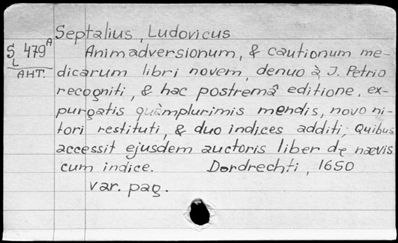 Septalius, Ludovicus
S 479 A
L
AHT.
Animadversionum, & cautionum me-
dicarum libri novem, denuo à J. Petrio
recogniti, & hac postremâ editione, ex-
purgatis quàmplurimis mendis, novo ni-
tori restituti, & duo indices additi; Quibus
accessit ejusdem auctoris liber de nævis
cum indice. Dordrechti, 1650
var. pag.